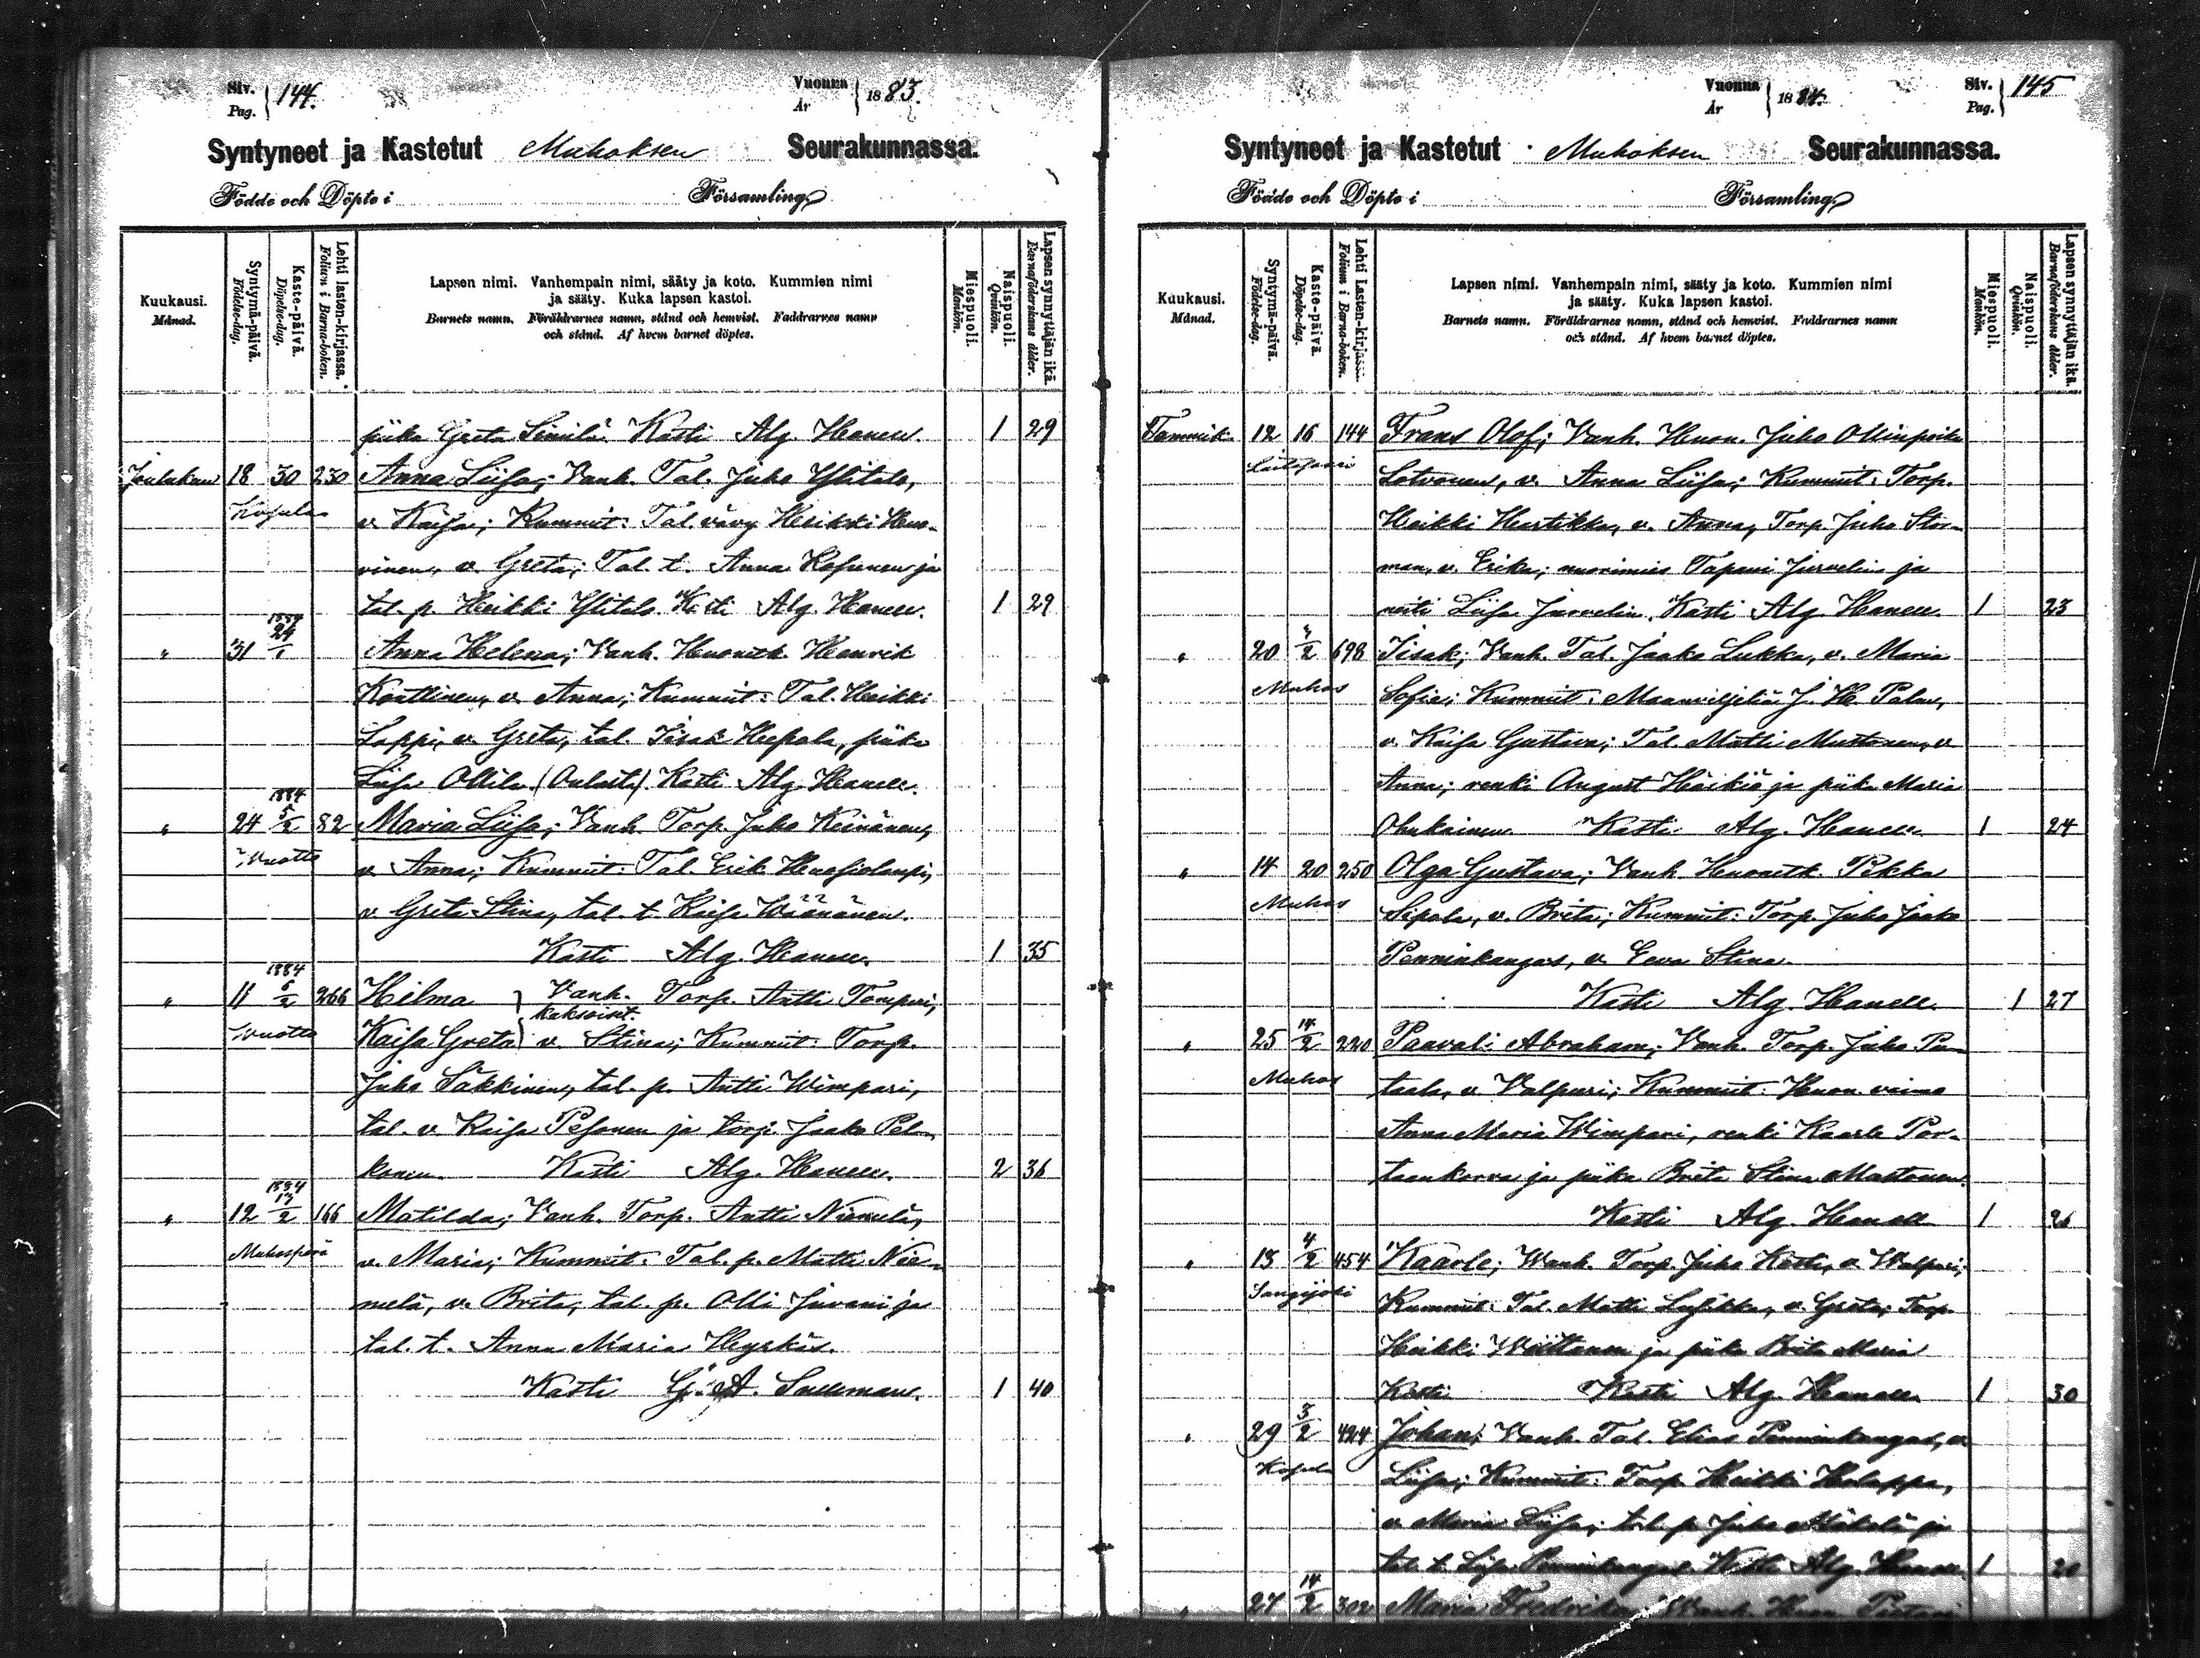 Siv. Pag. 144. Vuonna År 1883.
Syntyneet ja Kastetut Muhoksen Seurakunnassa.
Födde och Döpte i Församling
Kuukausi. Månad.
Syntymä-päivä. Födelse-dag.
Kaste-päivä. Döpelse-dag.
Lehti lasten-kirjassa. Folium i Barna-boken.
Lapsen nimi. Vanhempain nimi, sääty ja koto. Kummien nimi
ja sääty. Kuka lapsen kastoi.
Barnets namn. Föräldrarnes namn, stånd och hemvist. Faddrarnes namn
och stånd. Af hvem barnet döptes.
Miespuoli. Mankön.
Naispuoli. Qvinkön.
Lapsen synnyttäjän ikä. Barnaföderskans ålder.
piika Greta Simila Kasti Alg. Hanell. 1 29
Joulukuu 18 30 230 Anna Liisa; Vanh. Tal. Juho Ylitalo,
Kosula v. Kaisa; Kummit: Tal. vävy Heikki Huo-
vinen, v. Greta; Tal. t. Anna ja
tal. p. Heikki Ylitalo. Kasti Alg. Hanell. 1 29
1884
" 31 24/1 Anna Helena; Vanh. Huonem. Henrik
v. Anna; Kummit: Tal. Heikki
Lappi, v. Greta, tal. Iisak Hepola, piika
Liisa Ollila (Oulusta). Kasti Alg. Hanell.
1884
" 24 5/2 82 Maria Liisa; Vanh. Torp. Juho Keinänen,
v. Anna; Kummit: Tal. Erik
v. Greta Stina, tal. t. Kaisa Wäänänen.
Kasti Alg. Hanell. 1 35
1884
" 11 6/2 266 Hilma } Vanh. Torp. Antti Tomperi,
kaksoiset.
Kaisa Greta } v. Stina; Kummit: Torp.
Juho Säkkinen, tal. p. Antti Wimpari,
tal. v. Kaisa Pesonen ja torp. Jaako Pel-
konen. Kasti Alg. Hanell. 2 36
1884
" 12 17/2 166 Matilda; Vanh. Torp. Antti Niemelä,
Muhosperä v. Maria; Kummit: Tal. p. Matti Nie-
melä, v. Brita, tal. p. Olli Juvani ja
tal. t. Anna Maria Hyrkäs.
Kasti G. A. 1 40
Vuonna År 1884. Siv. Pag. 145
Syntyneet ja Kastetut Muhoksen Seurakunnassa.
Födde och Döpte i Församling
Kuukausi. Månad.
Syntymä-päivä. Födelse-dag.
Kaste-päivä. Döpelse-dag.
Lehti Lasten-kirjassa. Folium i Barna-boken.
Lapsen nimi. Vanhempain nimi, sääty ja koto. Kummien nimi
ja sääty. Kuka lapsen kastoi.
Barnets namn. Föräldrarnes namn, stånd och hemvist. Faddrarnes namn
och stånd. Af hvem barnet döptes.
Miespuoli. Mankön.
Naispuoli. Qvinkön.
Lapsen synnyttäjän ikä. Barnaföderskans ålder.
Tammik. 12 16 144 Frans Olof; Vanh. Huon. Juho Ollinpoika
Lotvonen, v. Anna Liisa; Kummit: Torp.
Heikki Hurtikka, v. Anna, Torp. Juho Stor-
man, v. Erika; nuorimies Tapani Jurvelin ja
neiti Liisa Jurvelin. Kasti Alg. Hanell. 1 23
" 20 /2 698 Iisak; Vanh. Tal. Jaako Lukka, v. Maria
Muhos Sofia; Kummit: Maanviljeliä J. H.
v. Kaisa Gustava; Tal. Matti Mustonen, v.
Anna; renki August Häikiö ja piika Maria
Ohukainen. Kasti Alg. Hanell. 1 24
" 14 20 250 Olga Gustava; Vanh. Huonem. Pekka
Muhos Sipola, v. Brita; Kummit: Torp. Juho Jaako
Penninkangas, v. Eeva Stina.
Kasti Alg. Hanell. 1 27
" 25 14/2 220 Paavali Abraham; Vanh. Torp. Juho
Muhos v. Valpuri; Kummit: Huon. vaimo
Anna Maria Wimpari, renki Kaarle Por-
taankorva ja piika Brita Stina Mustonen.
Kasti Alg. Hanell 1 26
" 13 4/2 454 Kaarle; Wanh. Torp. Juho Kästi, v. Walpuri;
Sangijoki Kummit: Tal. Matti v. Greta; Torp.
Heikki ja piika Brita Maria
Kästi Kasti Alg. Hanell. 1 30
" 29 3/2 424 Johan; Vanh. Tal. Elias Penninkangas, v.
Kosula Liisa; Kummit: Torp. Heikki Holappa,
v. Maria Liisa; tal. p. Juho Mäkelä ja
tal. t. Liisa Penninkangas. Kasti Alg. Hanell. 1
" 27 14/2 302 Maria Fredrika; Vanh. Huon.